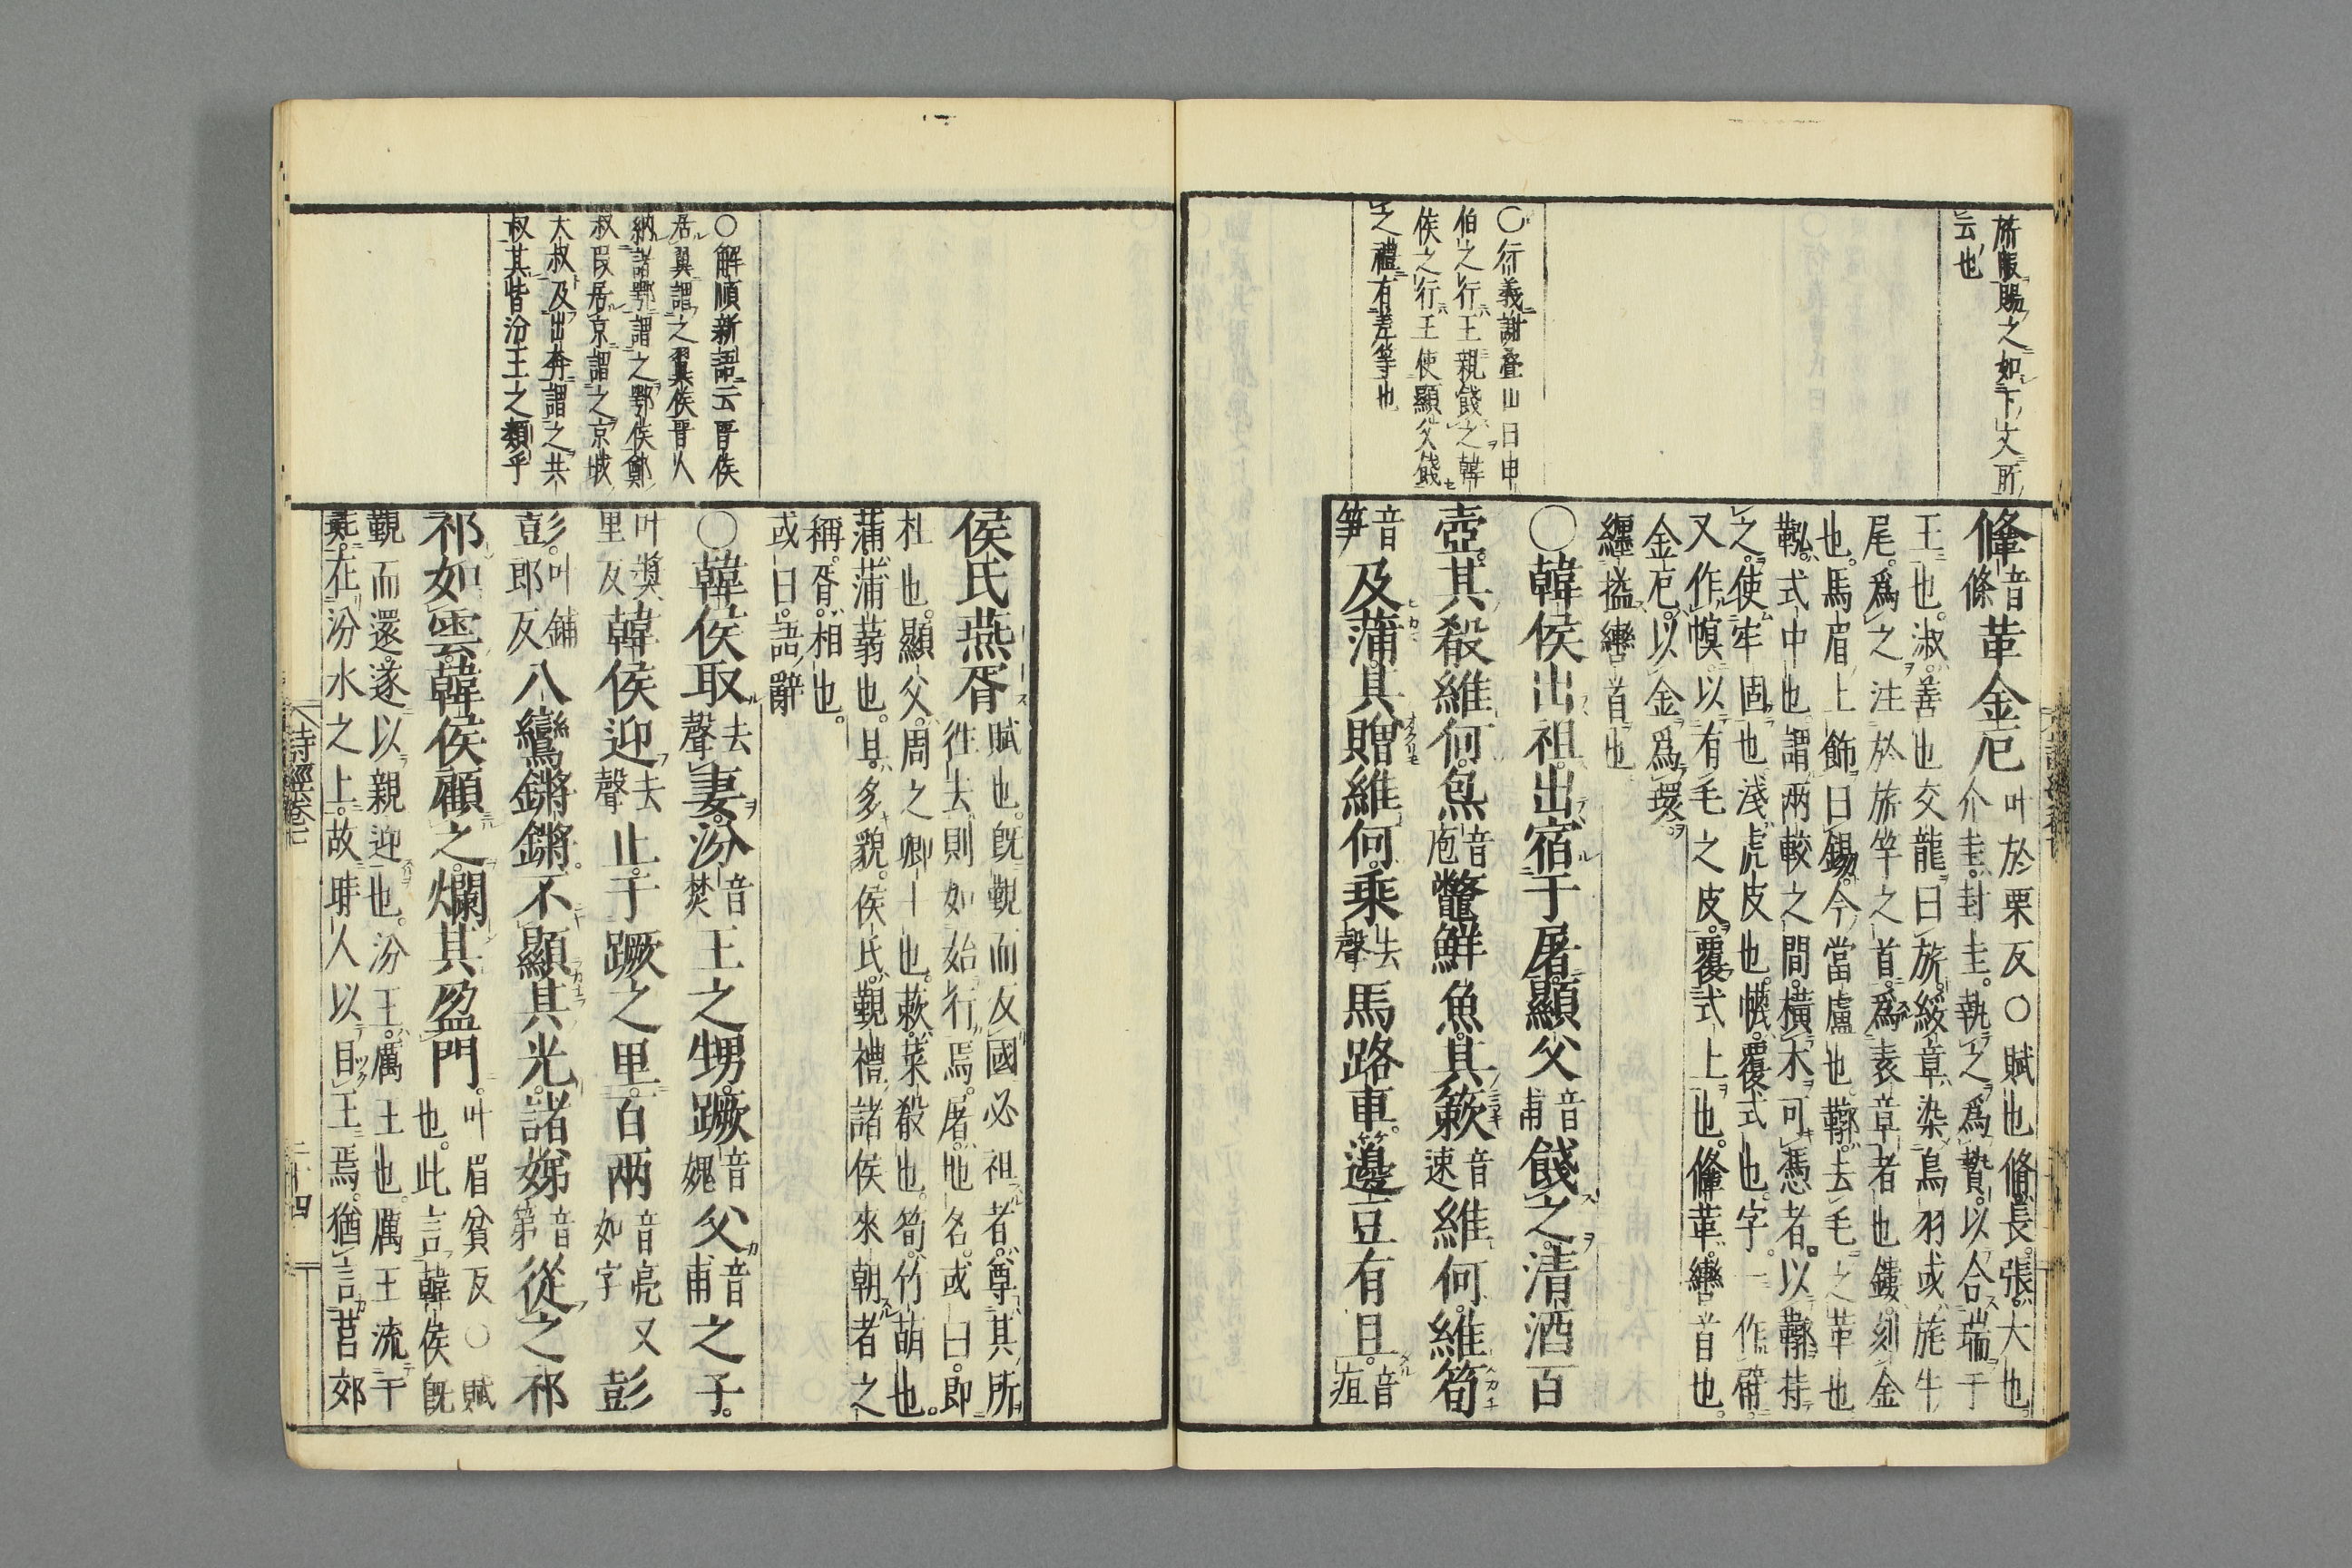 所服賜之如下文所
云也
○衍義謝疊山曰申
伯之行王親餞之韓
侯之行王使顯父餞
之禮有差等也
鞗音條革金厄叶於栗反○賦也脩長張大也
介圭封圭執之為贄以合瑞于
王也淑善也交龍曰旂綏章染鳥羽或旄牛
尾為之注於旂竿之首為表章者也鏤刻金
也馬眉上飾曰鍚今當盧也鞹去毛之革也
鞃式中也謂兩較之間橫木可憑者以鞹持
之使牢固也淺虎皮也幭覆式也字一作幦
又作幎以有毛之皮覆式上也鞗革轡首也
金厄以金為環
纏搤轡首也
○韓侯出祖出宿于屠顯父音甫餞之清酒百
壺其殽維何炰音庖鼈鮮魚其蔌音速維何維筍
音笋及蒲其贈維何乘去聲馬路車籩豆有且音疽
○解頤新語云晉侯
居翼謂之翼侯晉人
納諸鄂謂之鄂侯鄭
叔段居京謂之京城
大叔及出奔謂之共
叔其皆汾王之類乎
侯氏燕胥賦也旣覲而反國必祖者尊其所
往去則如始行焉屠地名或曰即
杜也顯父周之卿士也蔌菜殽也筍竹萌也
蒲蒲蒻也且多貌侯氏覲禮諸侯來朝者之
稱胥相也
或曰語辭
○韓侯取去聲妻汾音焚王之甥蹶音媿父音甫之子
叶奬里反韓侯迎去聲止于蹶之里百兩音亮又如字彭
彭叶鋪郎反八鸞鏘鏘不顯其光諸娣音第從之祁
祁如雲韓侯顧之爛其盈門叶眉貧反○賦
也此言韓侯旣
覲而還遂以親迎也汾王厲王也厲王流于
彘在汾水之上故時人以目王焉猶言莒郊
詩經卷七
二十四